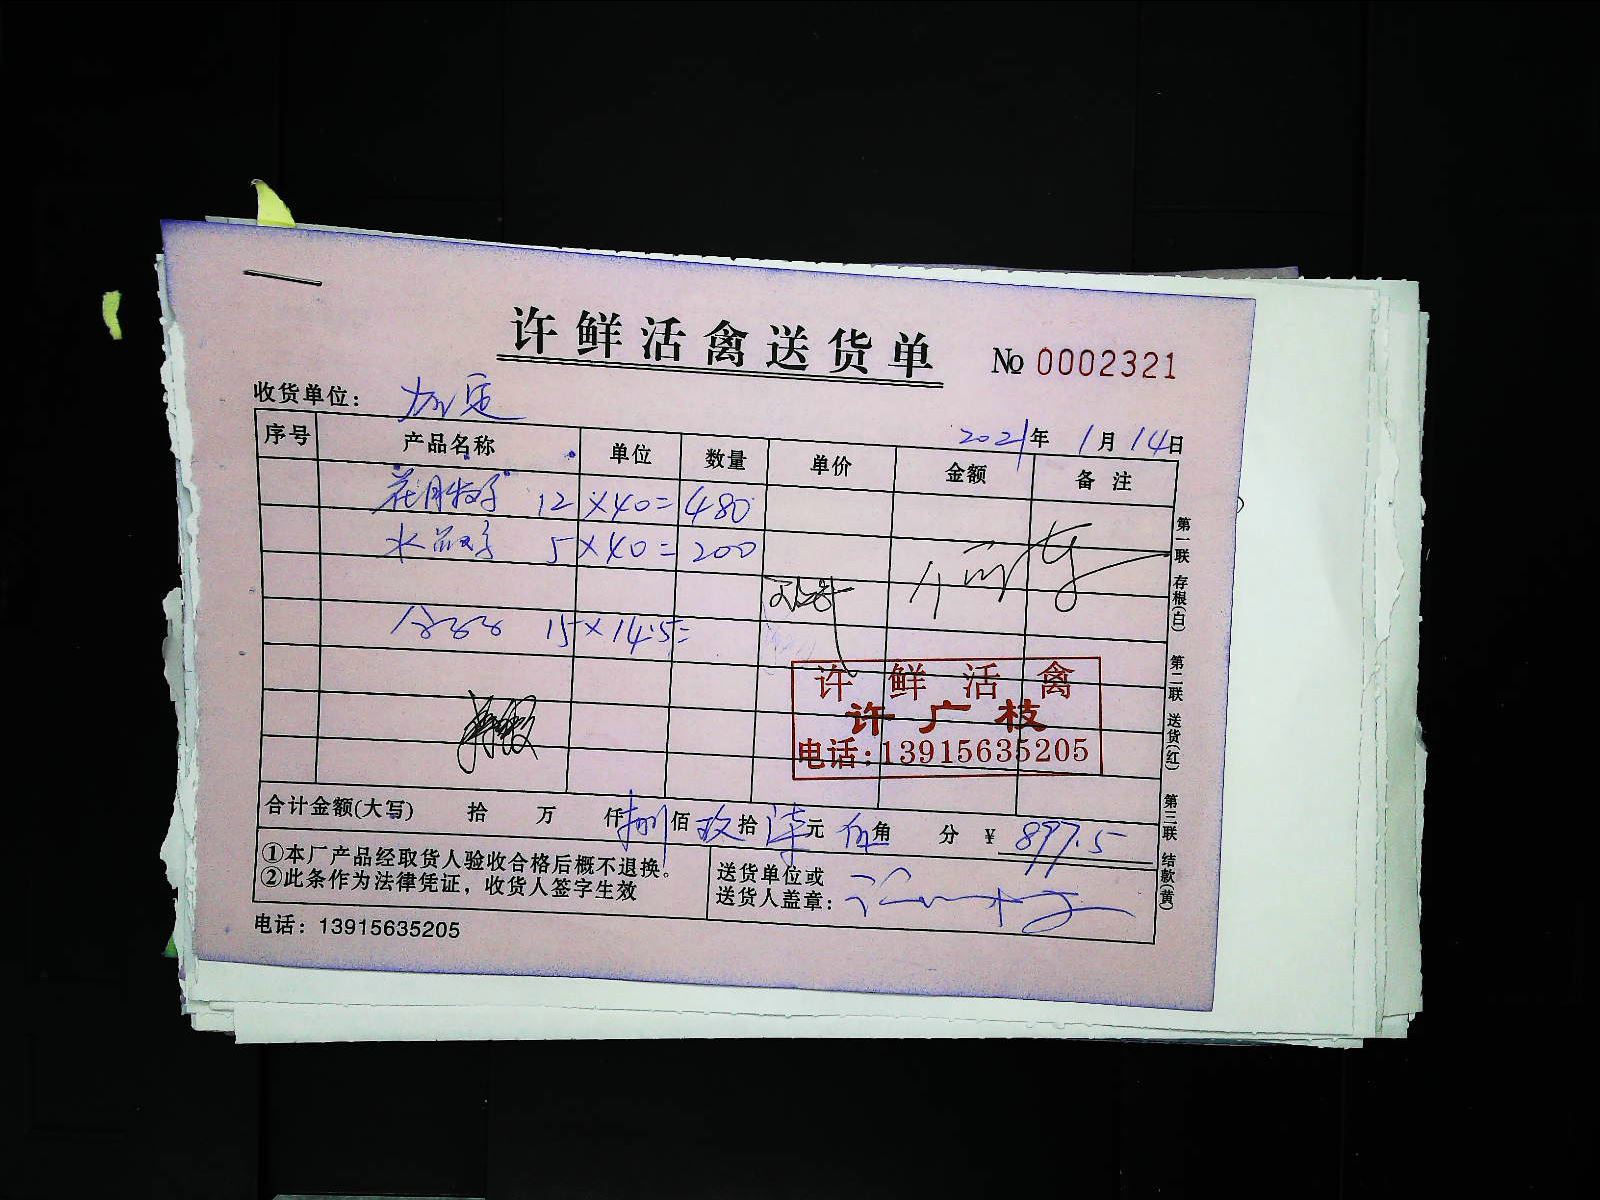 许鲜活禽送货单 No 0002321
收货单位：
2021年 1月 14日
序号 产品名称 单位 数量 单价 金额 备注
12×40=480
水 5×40=200
15×14.5=
许鲜活禽
许广枝
电话:13915635205
合计金额(大写) 拾 万 仟捌佰玖拾柒元伍角 分 ¥ 897.5
①本厂产品经取货人验收合格后概不退换。
②此条作为法律凭证，收货人签字生效
送货单位或
送货人盖章：
电话：13915635205
第一联 存根(白) 第二联 送货(红) 第三联 结款(黄)